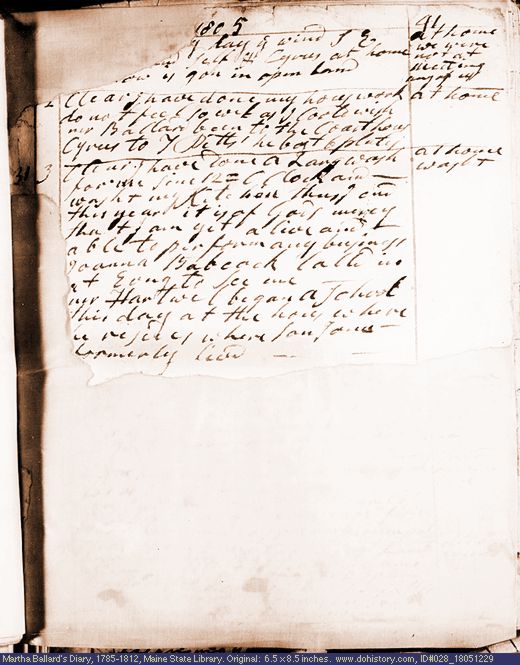 1805
41
day & wind S E
Self & Cyrus at home
now is gon in open land
at home
we were
not at
meeting
any of us
Clear I have done my hous work
do not feel so well as I Could wish
mr Ballard been to the Court hous
Cyrus to
at home
31 3 Clear I have done a Larg wash
for me Sinc 12 O Clock and
washt my Kitchen thus I end
this year it is of Gods mercy
that I am yet alive and
able to perform any busyness
Joanna Babcock Calld in
at Evng to See me
mr Hartwel began a School
this day at the hous where
he resides where Son Jona
formerly livd
at home
washt
Martha Ballard's Diary, 1785-1812, Maine State Library. Original: 6.5 x 8.5 inches. www.dohistory.com, ID#028_18051229